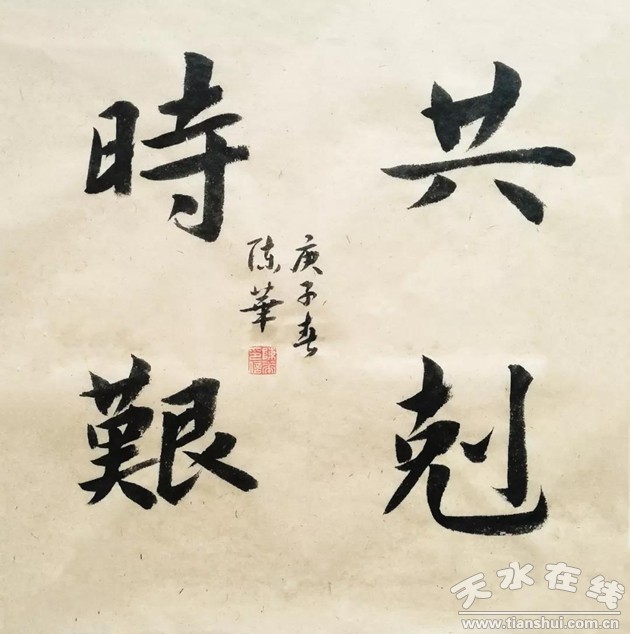 共剋
時艱
庚子春
陈華
天水在线
www.tianshui.com.cn